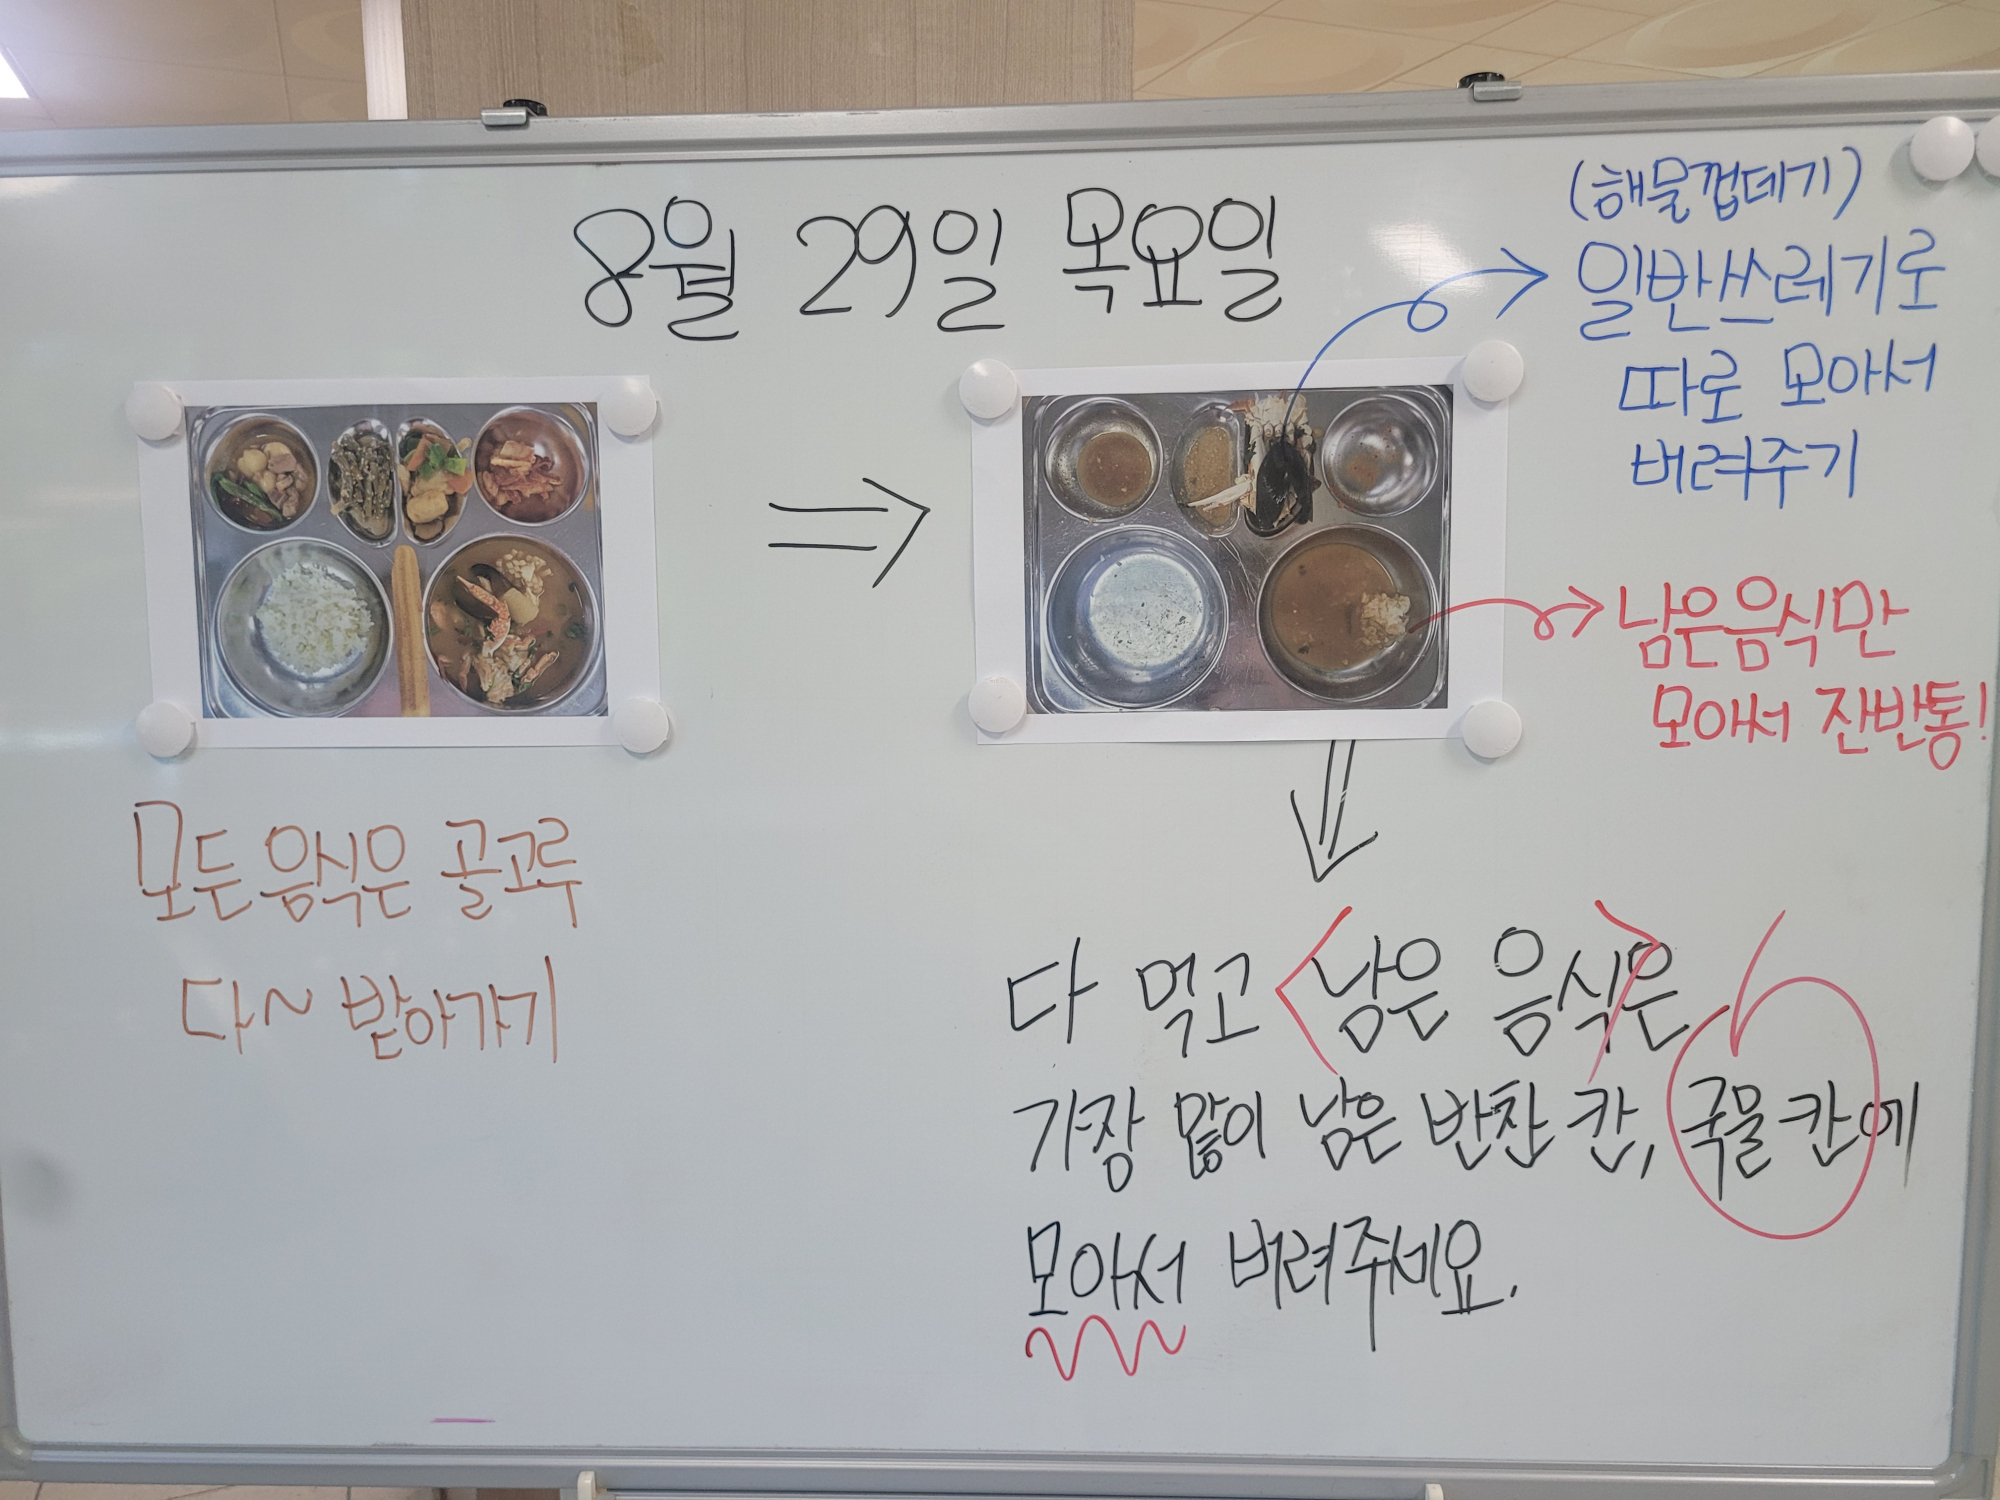 8월 29일 목요일
(해물껍데기)
일반쓰레기로
따로 모아서
버려주기
남은음식만
모아서 잔반통!
모든음식은 골고루
다~ 받아가기
다 먹고 <남은 음식>은
가장 많이 남은 반찬 칸, 국물 칸에
모아서 버려주세요.